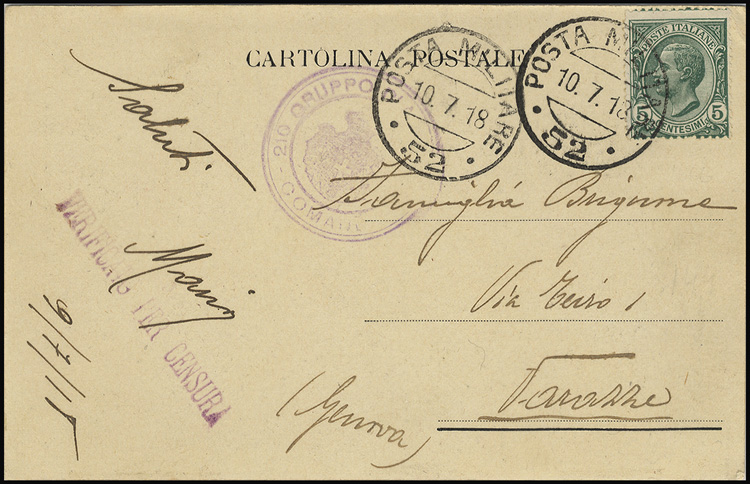 CARTOLINA POSTALE
POSTE ITALIANE
5 CENTESIMI 5
POSTA MILITARE
10.7.18
52
POSTA MILITARE
10.7.18
52
210 GRUPPO
COMAN
Saluti
Famiglia
Via
Varazze
(Genova)
9/7/18
VERIFICATO PER CENSURA